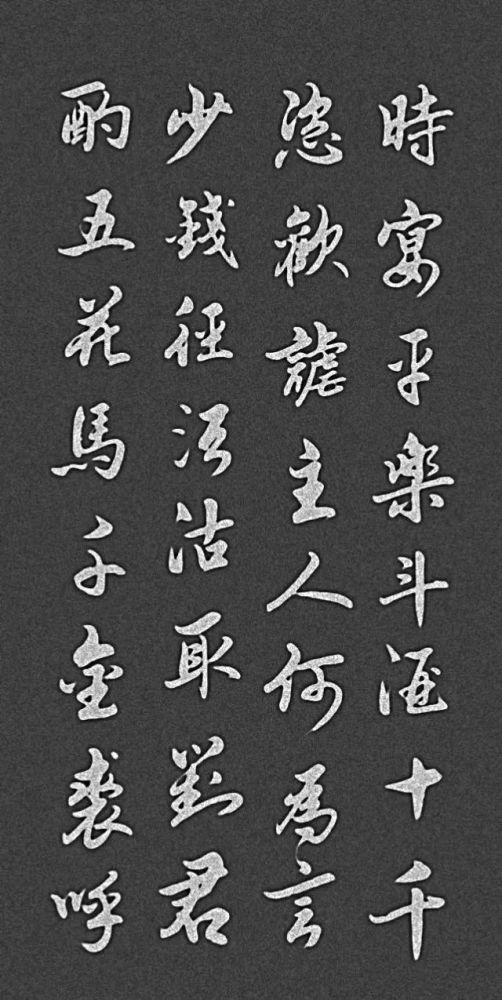 時宴平樂斗酒十千
恣歡謔主人何為言
少錢徑須沽取對君
酌五花馬千金裘呼